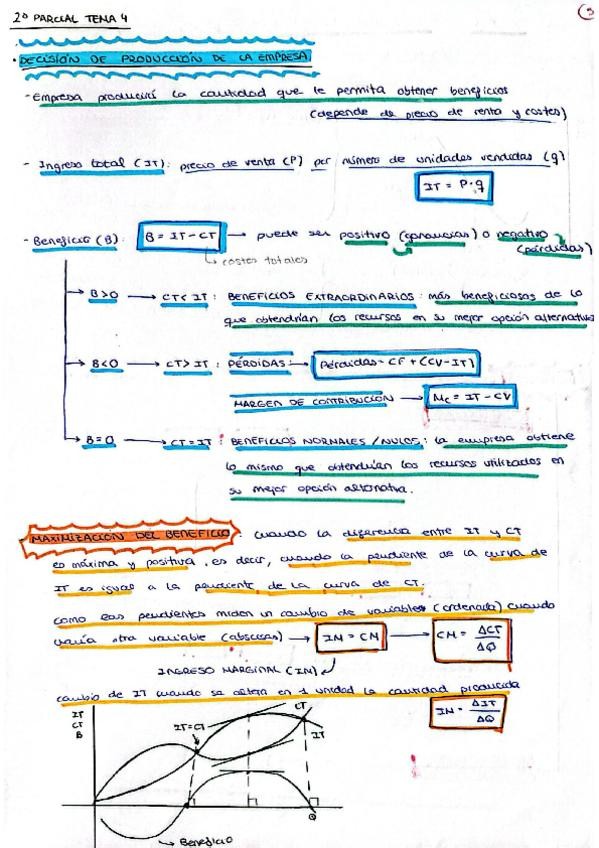 2º PARCIAL TEMA 4
· DECISIÓN DE PRODUCCIÓN DE LA EMPRESA
- Empresa producirá la cantidad que le permita obtener beneficios
(depende de precio de renta y costes)
- Ingreso total (IT): precio de venta (P) por número de unidades vendidas (q)
IT = P·q
- Beneficio (B): B = IT - CT → puede ser positivo (ganancias) o negativo
(pérdidas)
costes totales
→ B>0 → CT< IT : BENEFICIOS EXTRAORDINARIOS : más beneficiosos de lo
que obtendrían los recursos en su mejor opción alternativa
→ B<0 → CT> IT : PÉRDIDAS → Pérdidas = CF + (CV-IT)
MARGEN DE CONTRIBUCIÓN → Mc = IT - CV
→ B=0 → CT = IT : BENEFICIOS NORMALES / NULOS : la empresa obtiene
lo mismo que obtendrían los recursos utilizados en
su mejor opción alternativa.
- MAXIMIZACIÓN DEL BENEFICIO : cuando la diferencia entre IT y CT
es máxima y positiva, es decir, cuando la pendiente de la curva de
IT es igual a la pendiente de la curva de CT.
como eas pendientes miden un cambio de variables (ordenada) cuando
varía otra variable (abscisas) → IM = CM → CM = ΔCT / ΔQ
INGRESO MARGINAL (IM)
cambio de IT cuando se altera en 1 unidad la cantidad producida
IM = ΔIT / ΔQ
IT
CT
B
IT=CT
CT
IT
Q
→ Beneficio